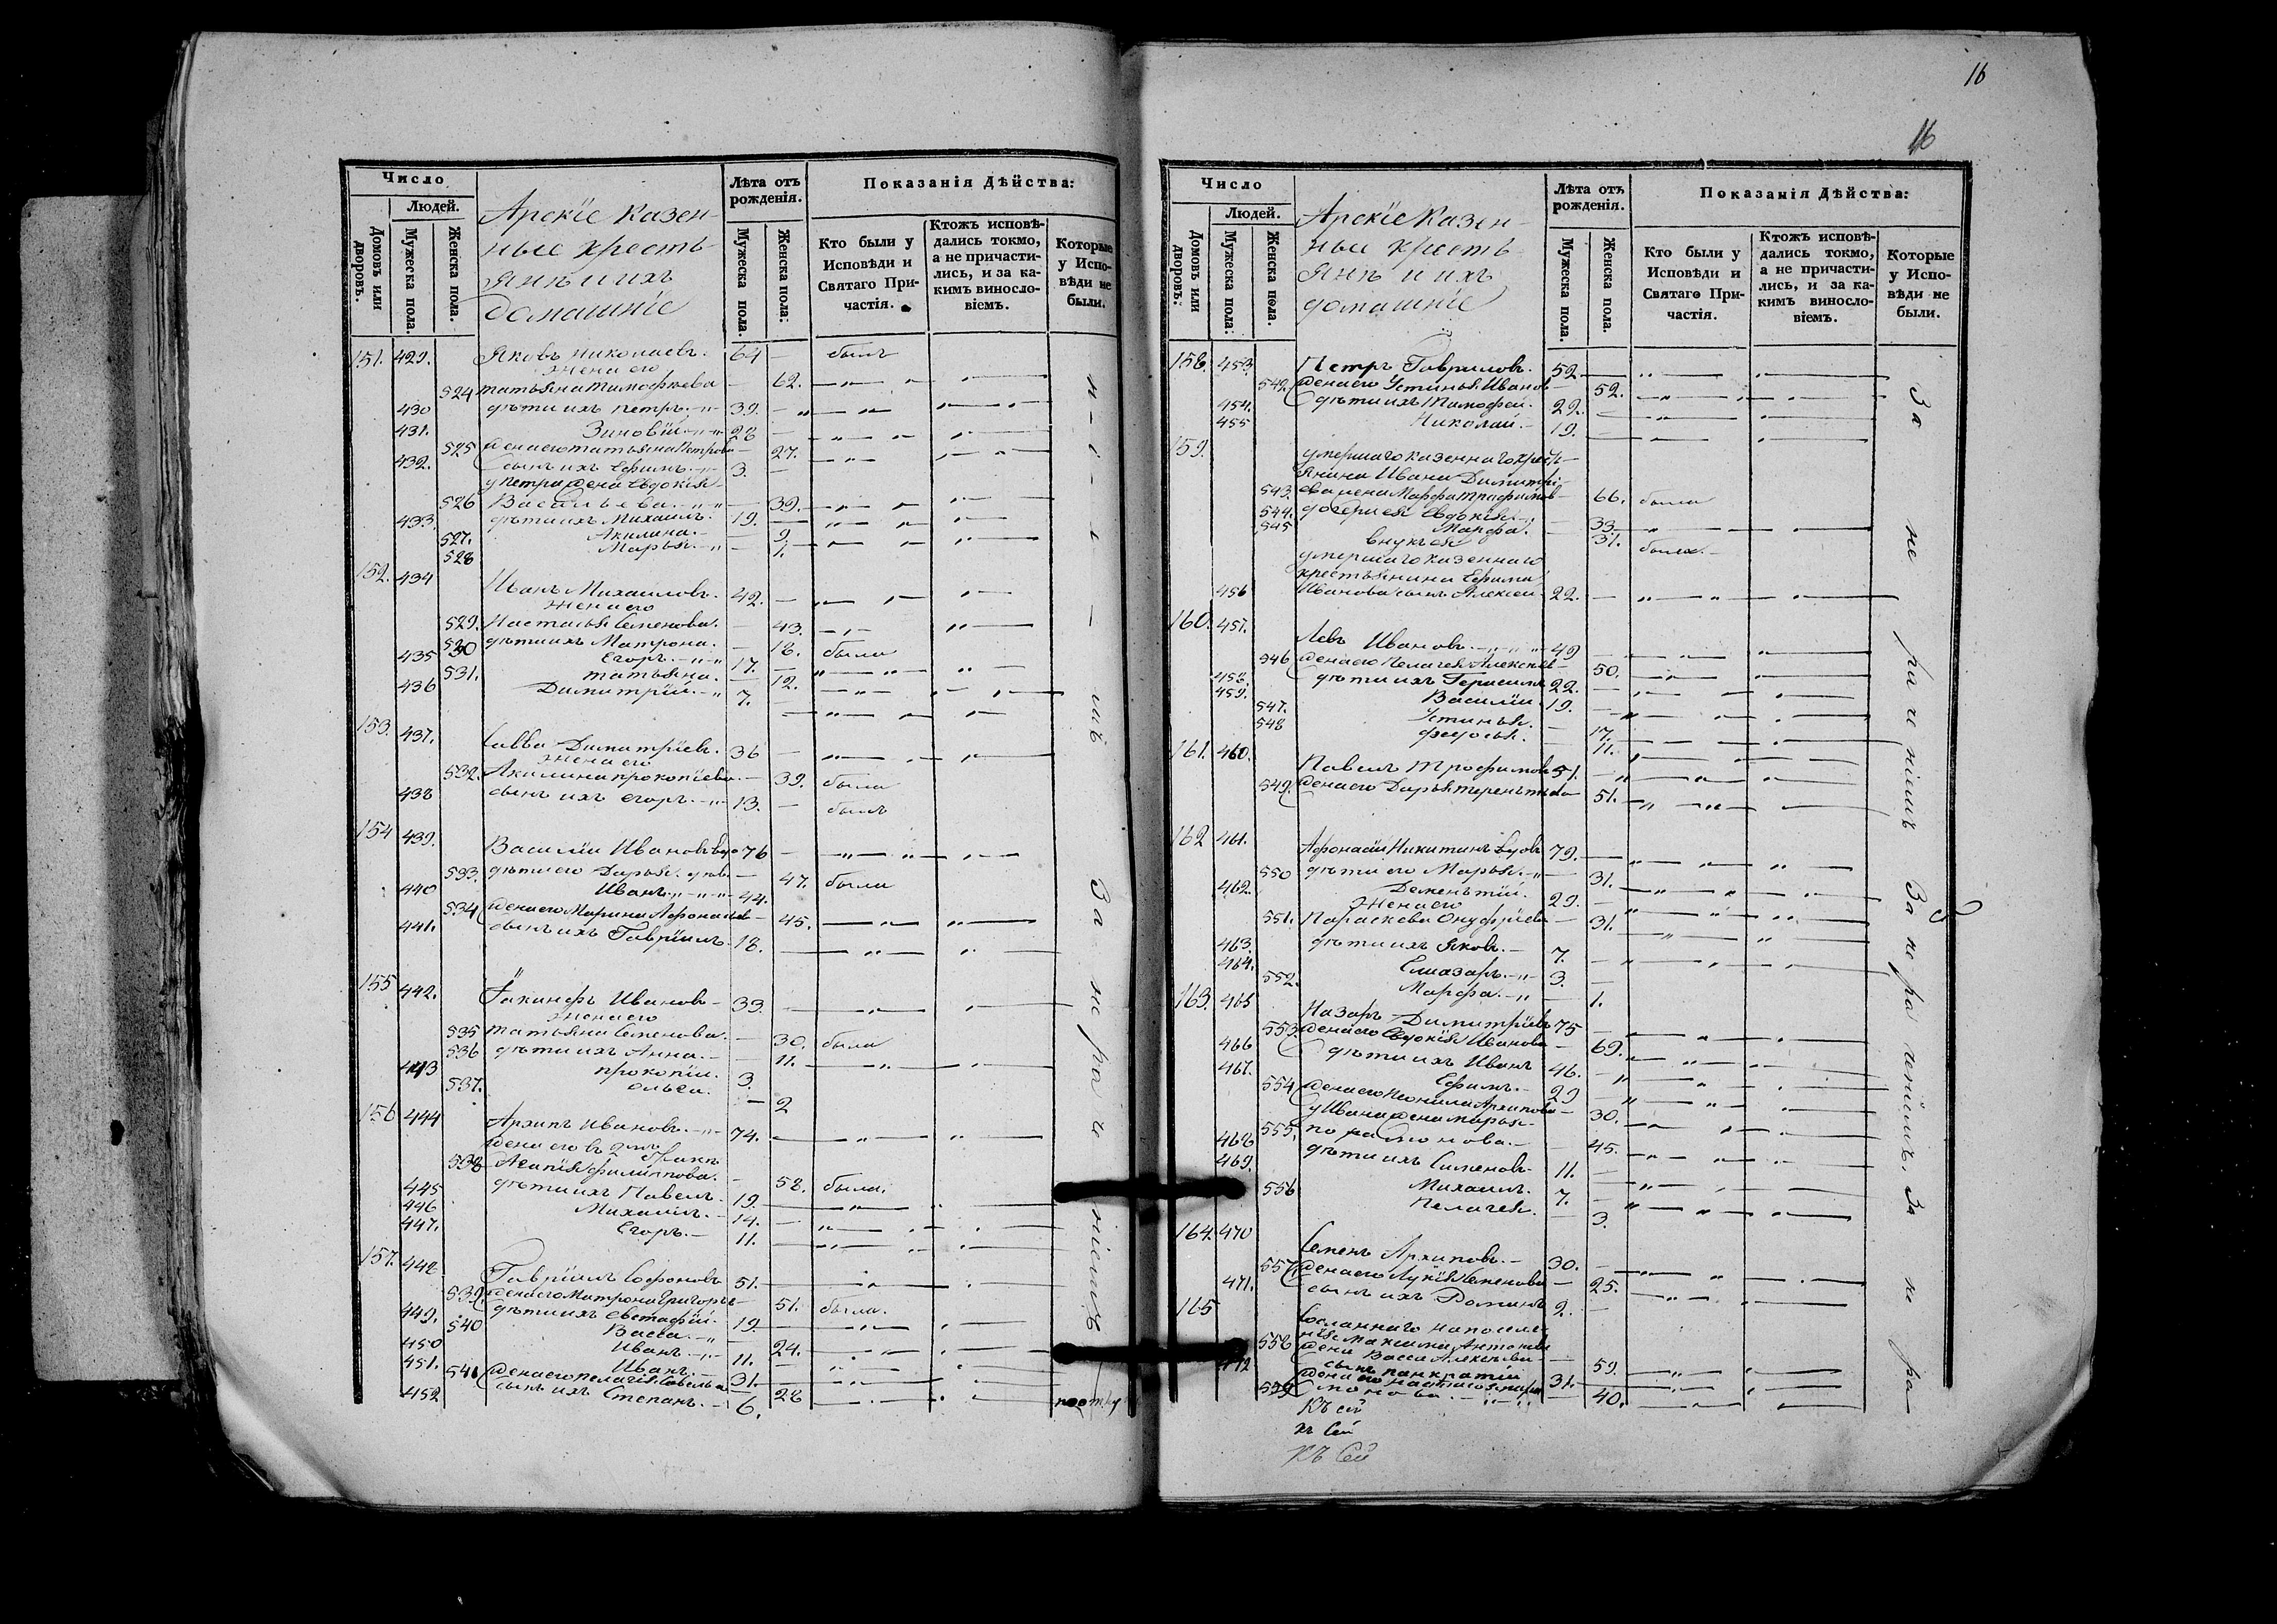 Число
Людей.
Домовъ или дворовъ.
Мужеска пола.
Женска пола.
Арскіе казен-
ные кресть-
яне и ихъ
домашніе
Лѣта отъ рожденія.
Мужеска пола.
Женска пола:
Показанія Дѣйства:
Кто были у Исповѣди и Святаго Причастія.
Ктожъ исповѣдались токмо, а не причастились, и за какимъ винословіемъ.
Которые у Исповѣди не были.
151. 429. Яковъ Николаевъ. 64 — былъ
жена его
524 татьяна тимофѣева — 62.
430 дѣти ихъ петръ. 39.
431. Зиновій 28
525 жена его татьяна Петрова 27.
432. сынъ ихъ Ефимъ. 3.
у петра жена Евдокія
526 Васильева. — 39.
433. дѣти ихъ Михаилъ. 19.
527. Акилина. — 9.
528 Марья. — 1.
152. 434 Иванъ Михаиловъ. 42.
жена его
529. Настасья Семенова. — 43.
530 дѣти ихъ Матрона. — 18. была
435 Егоръ. 17.
531. татьяна. — 12.
436 Димитрій. 7.
153. 437. Савва Димитріев. 36
жена его
532. Акилина прокопіева. — 39. была
438 сынъ ихъ егоръ. 13. — былъ
154 439. Василій Ивановъ вдо 76
533. дѣти его Дарья. — 47. была
440 Иванъ. 44.
534 жена его Марина Афонасіев 45.
441. сынъ ихъ Гавріилъ 18.
155 442. Іакинфъ Иванов 33.
жена его
535 татьяна Семенова. — 30. была
536 дѣти ихъ Анна. — 11.
443 прокопій. 3.
537. ольга. — 2
156 444 Архипъ Иванов. 74.
жена его въ 2мъ бракѣ
538 Агапія филиппова. — 58. была.
445 дѣти ихъ Павелъ. 19.
446 Михаилъ. 14.
447. Егоръ. 11.
157. 448 Гавріилъ Софонов 51.
539. жена его Матрона Григорьев 51. была.
449. дѣти ихъ Евстафій. 19.
540 Васса. 24.
450 Иванъ 11.
451. Иванъ 31.
541 жена его пелагія Савельева 28
452 сынъ ихъ Степанъ. 6.
За не ра че ніемъ
16
16
Число
Людей.
Домовъ или дворовъ:
Мужеска пола:
Женска пола.
Арскіе казен-
ные кресть
яне и ихъ
домашніе
Лѣта отъ рожденія.
Мужеска пола.
Женска пола.
Показанія Дѣйства:
Кто были у Исповѣди и Святаго Причастія.
Ктожъ исповѣдались токмо, а не причастились, и за какимъ винословіемъ.
Которые у Исповѣди не были.
158 453. Петръ Гаврилов. 52.
542. жена его Устинья Иванов 52.
454. дѣти ихъ Тимофей. 22.
455 Николай. 19.
159. умершаго казеннаго крест
янина Ивана Димитрі
543. ева жена Марфа трафимов 66. была
544. дочери ея Евдокія 33.
545 Марфа. 31. была.
внукъ ея
умершаго казеннаго
крестьянина Ефима
456 Иванова сынъ Алексей 22.
160. 457. Левъ Иванов. 49
546 жена его Пелагея Алексеев 50.
458. дѣти ихъ Герасимъ 22.
459. Василій 19.
547. Устинья. 17.
548 федосья. 11.
161. 460. Павелъ трофимов 51.
549. жена его Дарья терентьева 51.
162 461. Афонасій Никитинъ вдов 79.
550 дѣти его Марья. 31.
462. Дементій. 29.
жена его
551. Параскева Онуфріева 31.
463. дѣти ихъ Яков. 7.
464. Елиазаръ. 3.
552. Марфа. 1.
163. 465 Назаръ Димитріев 75
553. жена его Евдокія Иванова 69.
466 дѣти ихъ Иванъ 46.
467. Ефимъ. 29
554 жена его Неонила Архипова 30.
у Ивана жена марья
555. парамонова. 45.
468 дѣти ихъ Симеонъ 11.
469. Михаилъ. 7.
556 Пелагея. 3.
164. 470 Семенъ Архипов. 30.
557. жена его Лукія Семенова 25.
471. сынъ ихъ Романъ 2.
165 Сосланнаго на поселе-
ніе Максима Антонова
558 жена Васса Алексѣева 59.
472 сынъ панкратій 31.
559 40.
За не ра че ніемъ За не ра ченіемъ. За не ра
Къ сей
къ Сей
Къ Сей